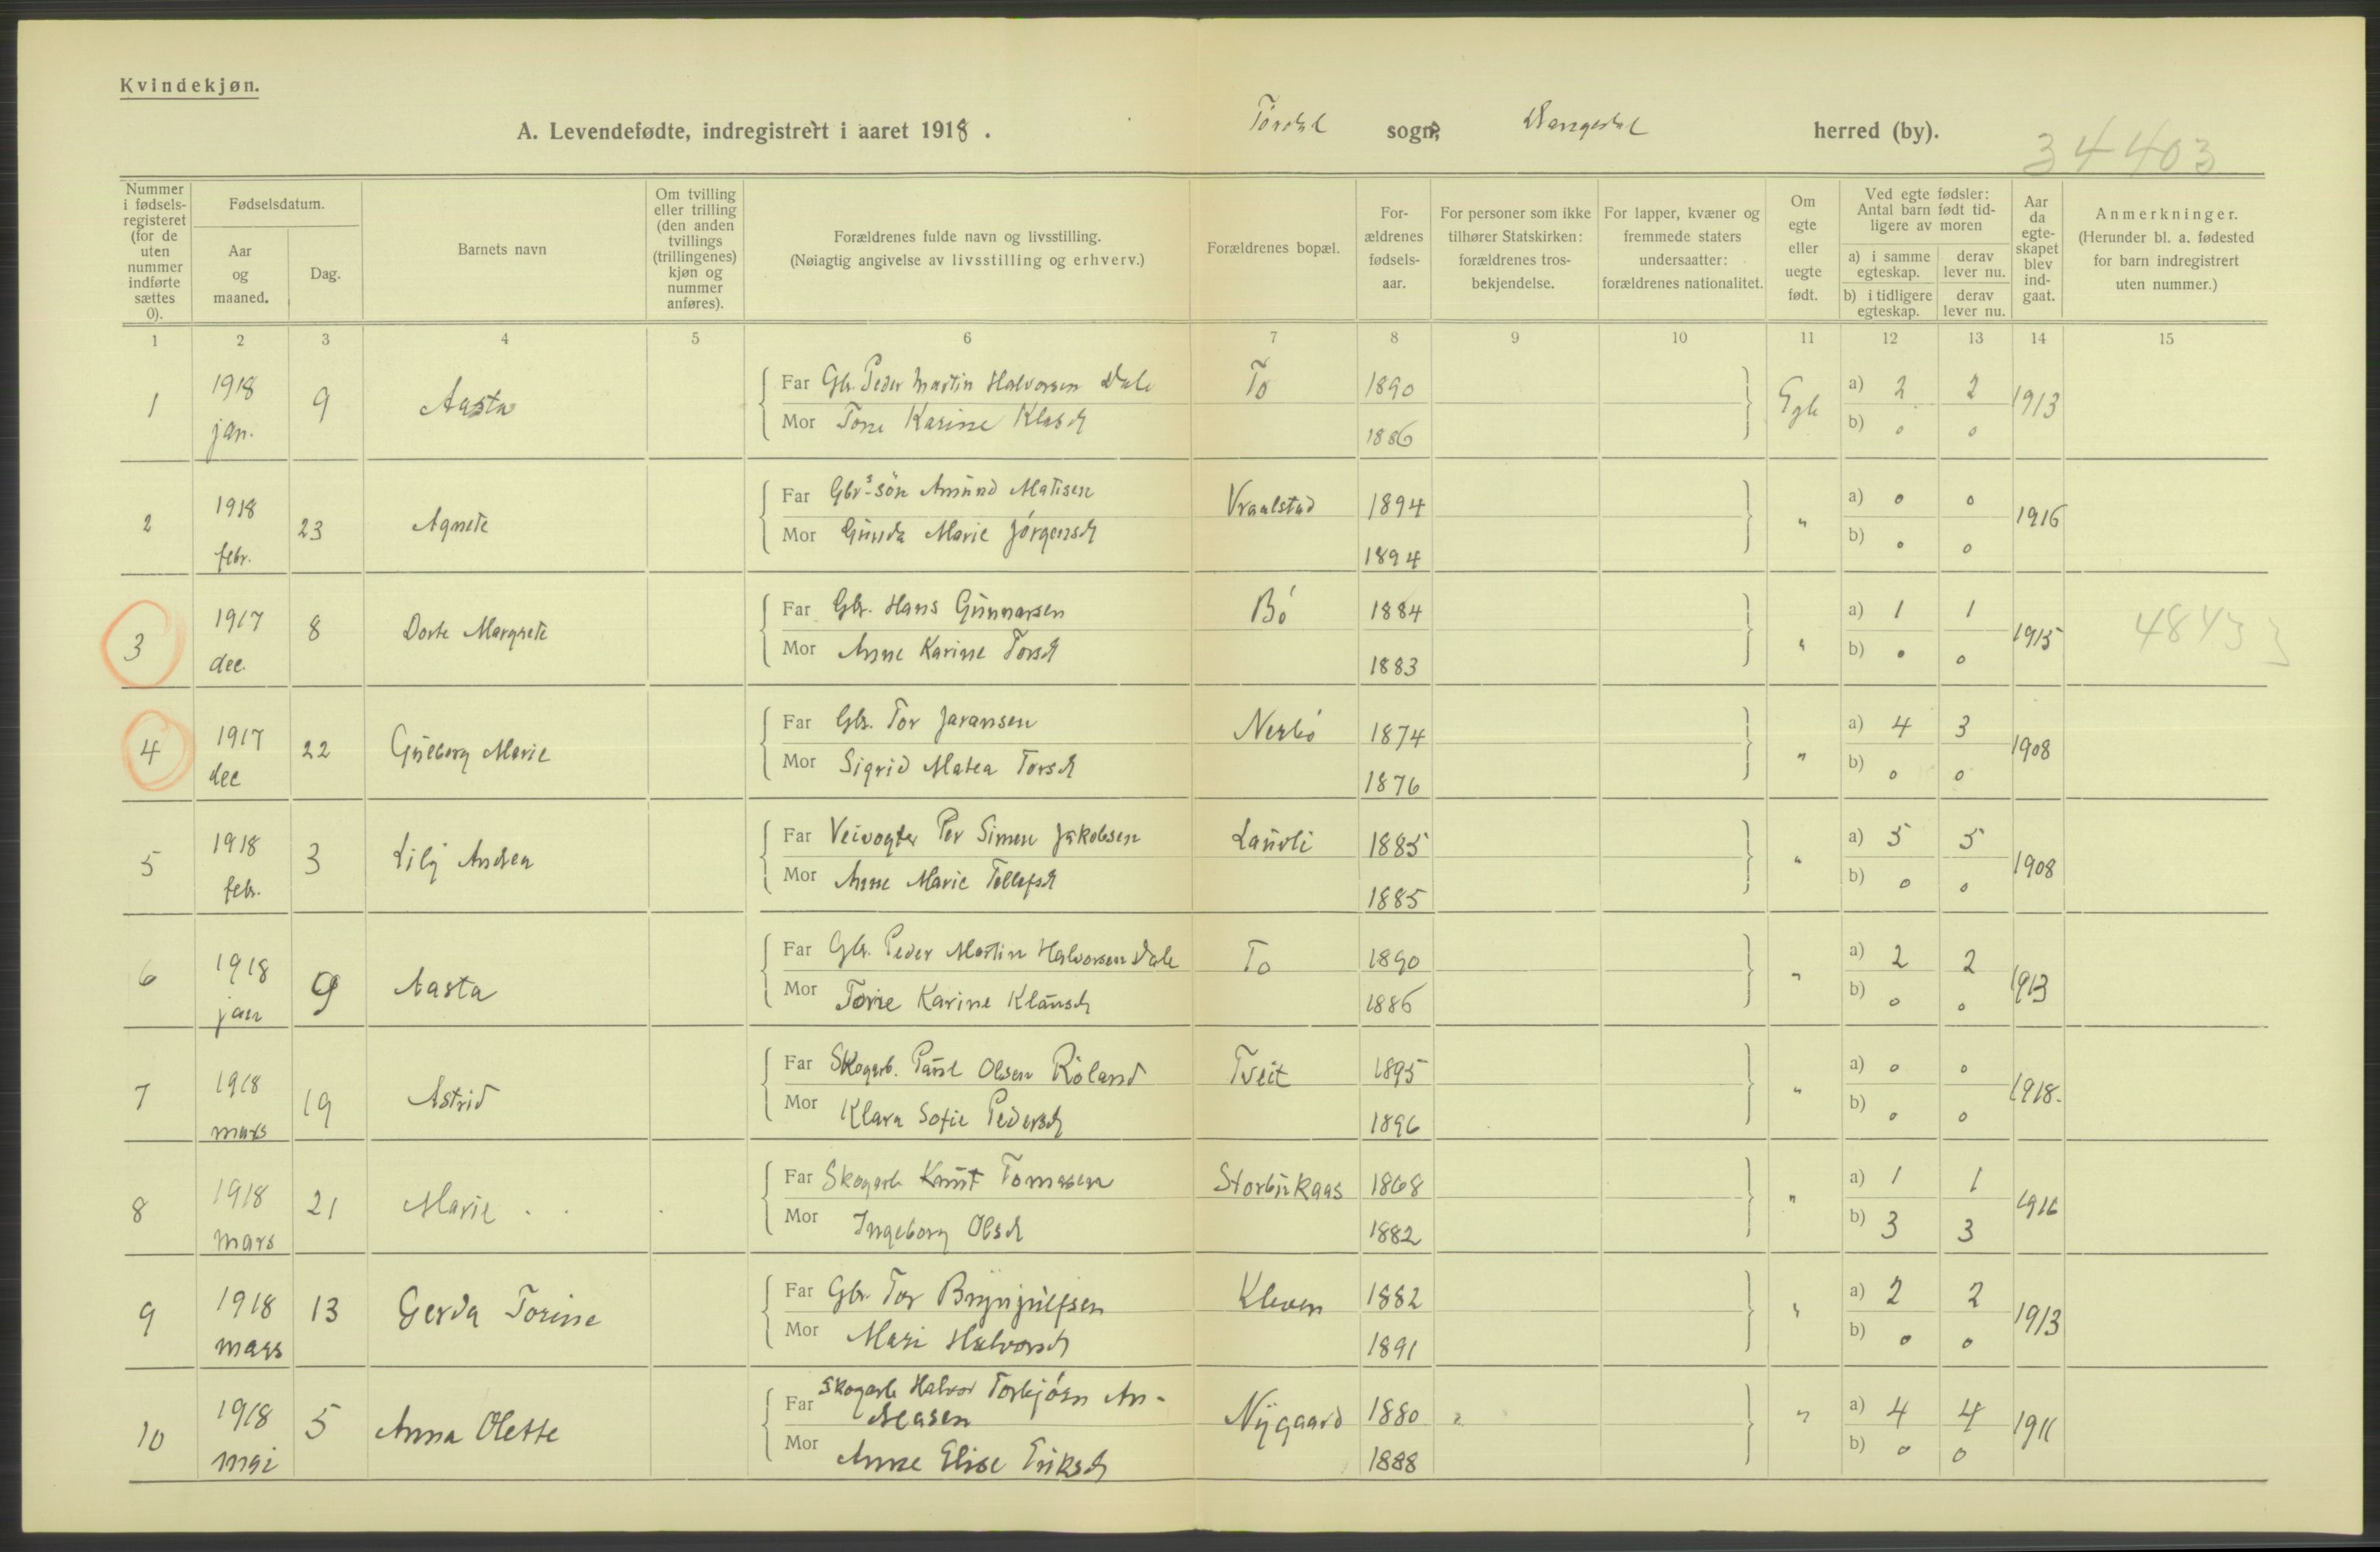 Kvindekjøn.
A. Levendefødte, indregistrert i aaret 1918. Tørdal sogn, Drangedal herred (by).
34403
Nummer i fødsels-registeret (for de uten nummer indførte sættes 0).
Fødselsdatum.
Aar og maaned.
Dag.
Barnets navn
Om tvilling eller trilling (den anden tvillings (trillingenes) kjøn og nummer anføres).
Forældrenes fulde navn og livsstilling.
(Nøiagtig angivelse av livsstilling og erhverv.)
Forældrenes bopæl.
For-ældrenes fødsels-aar.
For personer som ikke tilhører Statskirken: forældrenes tros-bekjendelse.
For lapper, kvæner og fremmede staters undersaatter: forældrenes nationalitet.
Om egte eller uegte født.
Ved egte fødsler: Antal barn født tid-ligere av moren
a) i samme egteskap.
derav lever nu.
b) i tidligere egteskap.
derav lever nu.
Aar da egte-skapet blev ind-gaat.
Anmerkninger.
(Herunder bl. a. fødested for barn indregistrert uten nummer.)
1 2 3 4 5 6 7 8 9 10 11 12 13 14 15
1 1918 jan. 9 Aasta
Far Gbr. Peder Martin Halvorsen Dale To 1890 Egte a) 2 2 1913
Mor Tone Karine Klasd 1886 b) 0 0
2 1918 febr. 23 Agnete
Far Gbr.s-søn Amund Matisen Vraalstad 1894 " a) 0 0 1916
Mor Gunda Marie Jørgensd 1894 b) 0 0
3 1917 dec. 8 Dorte Margrete
Far Gbr. Hans Gunnarsen Bø 1884 " a) 1 1 1915
Mor Anne Karine Torsd 1883 b) 0 0
4 1917 dec 22 Gueborg Marie
Far Gbr. Tor Jaransen Nerbø 1874 " a) 4 3 1908
Mor Sigrid Matea Torsd 1876 b) 0 0
5 1918 febr. 3 Lilij Andrea
Far Veivogter Per Simen Jakobsen Lauvli 1885 " a) 5 5 1908
Mor Anne Marie Tellefsd 1885 b) 0 0
6 1918 jan 9 Aasta
Far Gbr. Peder Martin Halvorsen Dale To 1890 " a) 2 2 1913
Mor Tone Karine Klausd 1886 b) 0 0
7 1918 mars 19 Astrid
Far Skogarb. Paul Olsen Röland Tveit 1895 " a) 0 0 1918.
Mor Klara Sofie Pedersd 1896 b) 0 0
8 1918 mars 21 Marie
Far Skogarb Knut Tomasen Storbukaas 1868 " a) 1 1 1916
Mor Ingeborg Olsd 1882 b) 3 3
9 1918 mars 13 Gerda Torine
Far Gbr. Tor Brynjulfsen Kleven 1882 " a) 2 2 1913
Mor Mari Halvorsd 1891 b) 0 0
10 1918 mai 5 Anna Olette
Far Skogarb Halvor Torbjørn An-
dreasen Nygaard 1880 " a) 4 4 1911
Mor Anne Elise Eriksd 1888 b) 0 0